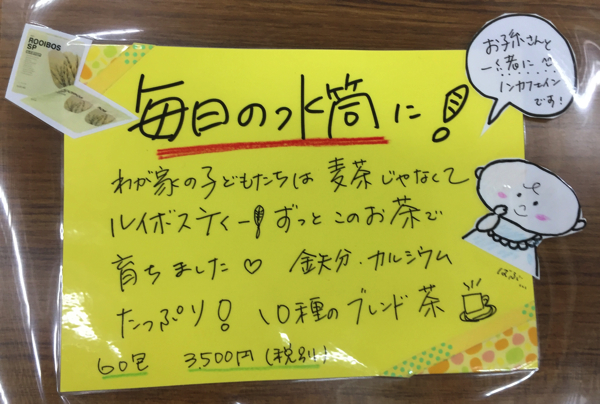 ROOIBOS
SP
お子さんと
一緒に♡
ノンカフェイン
です!
毎日の水筒に!
わが家の子どもたちは 麦茶じゃなくて
ルイボスティー!ずっとこのお茶で
育ちました♡ 鉄分・カルシウム
たっぷり! 10種のブレンド茶
ばぶ…
60包 3,500円(税別)